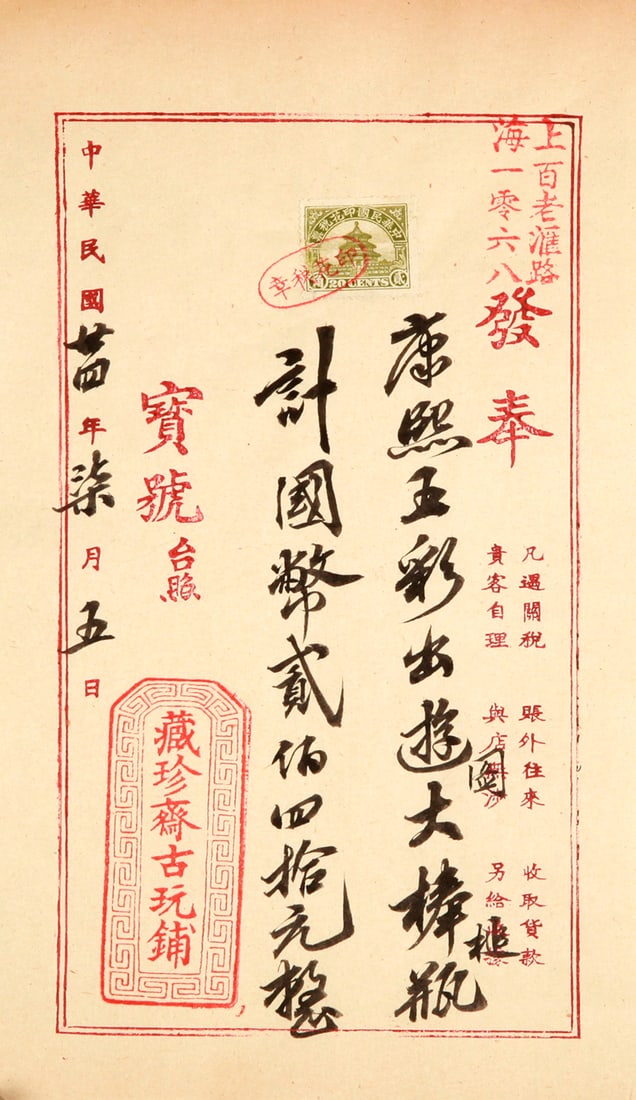 上百老滙路
海一零六八
發奉
凡遇關稅
貴客自理
賬外往來
與店
收取貨款
另給
康熙五彩出遊圖大棒槌瓶
中華民國印花稅票
20 CENTS
印花稅章
計國幣貳佰四拾元整
寶號台照
藏珍齋古玩鋪
中華民國廿四年柒月五日